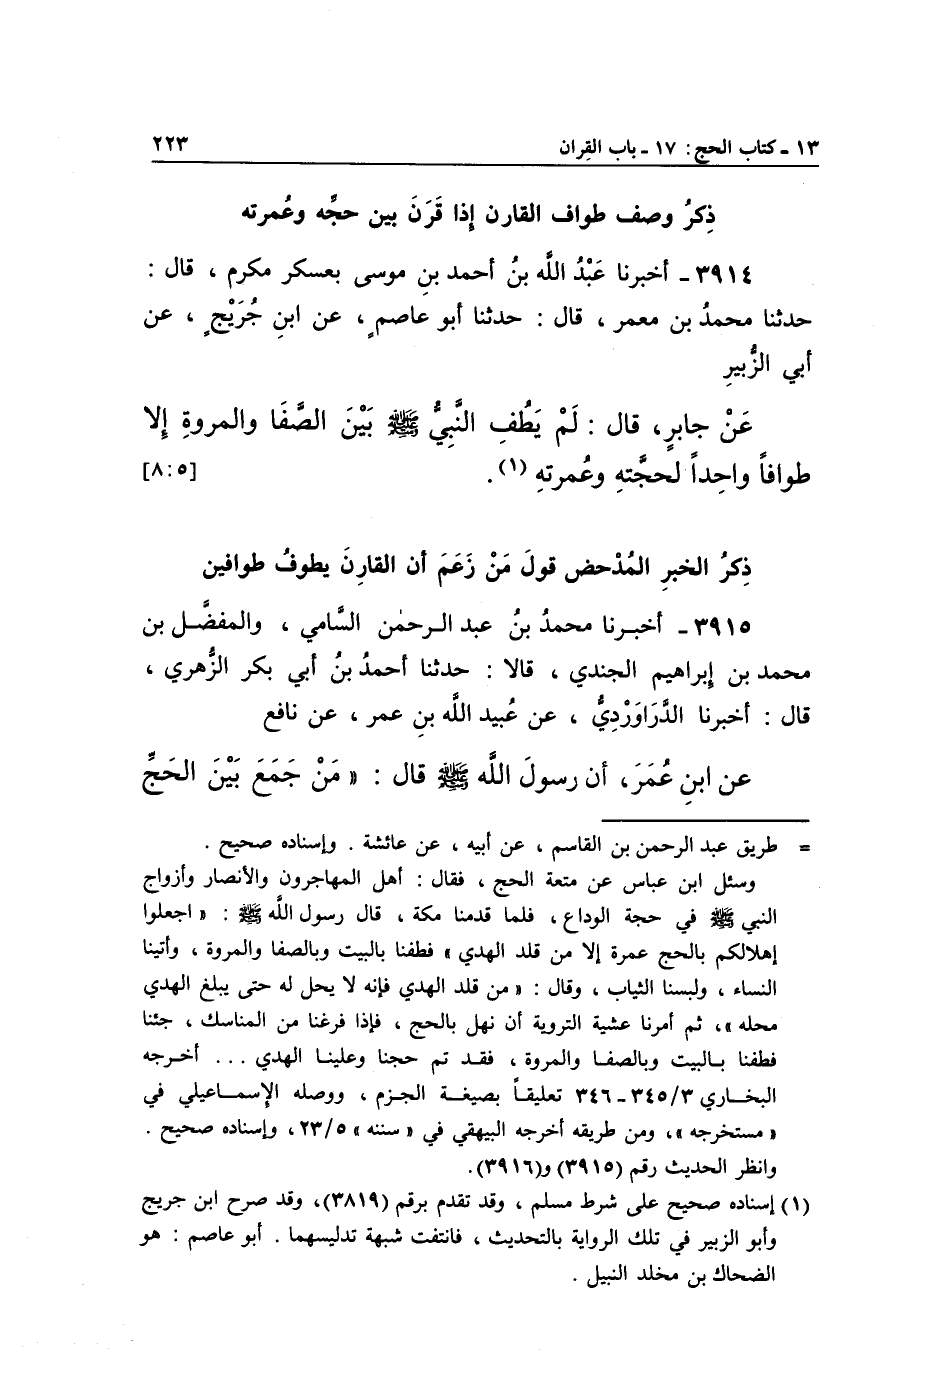 ١٣ ـ كتاب الحج: ١٧ ـ باب القِران ٢٢٣
ذِكرُ وصف طواف القارن إِذا قَرَنَ بين حجِّه وعُمرته
٣٩١٤ ـ أخبرنا عَبْدُ اللَّه بنُ أحمد بنِ موسى بعسكر مكرم ، قال :
حدثنا محمدُ بن معمر ، قال : حدثنا أبو عاصمٍ ، عن ابنِ جُرَيْجٍ ، عن
أبي الزُّبيرِ
عَنْ جابرٍ، قال : لَمْ يَطُفِ النَّبِيُّ ﷺ بَيْنَ الصَّفَا والمروةِ إِلا
طوافاً واحِداً لحجَّتهِ وعُمرتهِ (١) . [٥:٨]
ذِكرُ الخبرِ المُدْحض قولَ مَنْ زَعَمَ أن القارِنَ يطوفُ طوافين
٣٩١٥ ـ أخبـرنا محمدُ بنُ عبد الـرحمٰن السَّامي ، والمفضَّـل بن
محمد بن إبراهيم الجندي ، قالا : حدثنا أحمدُ بنُ أبي بكر الزُّهري ،
قال : أخبرنا الدَّرَاوَرْدِيُّ ، عن عُبيد اللَّه بنِ عمر ، عن نافع
عن ابنِ عُمَرَ، أن رسولَ اللَّه ﷺ قال : « مَنْ جَمَعَ بَيْنَ الحَجِّ
= طريق عبد الرحمن بن القاسم ، عن أبيه ، عن عائشة . وإسناده صحيح .
وسئل ابن عباس عن متعة الحج ، فقال : أهل المهاجرون والأنصار وأزواج
النبي ﷺ في حجة الوداع ، فلما قدمنا مكة ، قال رسول اللَّه ﷺ : « اجعلوا
إهلالكم بالحج عمرة إلا من قلد الهدي » فطفنا بالبيت وبالصفا والمروة ، وأتينا
النساء ، ولبسنا الثياب ، وقال : « من قلد الهدي فإنه لا يحل له حتى يبلغ الهدي
محله »، ثم أمرنا عشية التروية أن نهل بالحج ، فإذا فرغنا من المناسك ، جئنا
فطفنا بـالبيت وبالصفـا والمروة ، فقـد تم حجنا وعلينـا الهدي ... أخـرجه
البخـاري ٣/ ٣٤٥ ـ ٣٤٦ تعليقـاً بصيغـة الجـزم ، ووصله الإسمـاعيلي في
« مستخرجه »، ومن طريقه أخرجه البيهقي في « سننه » ٥/ ٢٣ ، وإسناده صحيح .
وانظر الحديث رقم (٣٩١٥) و(٣٩١٦).
(١) إسناده صحيح على شرط مسلم ، وقد تقدم برقم (٣٨١٩)، وقد صرح ابن جريج
وأبو الزبير في تلك الرواية بالتحديث ، فانتفت شبهة تدليسهما . أبو عاصم : هو
الضحاك بن مخلد النبيل .